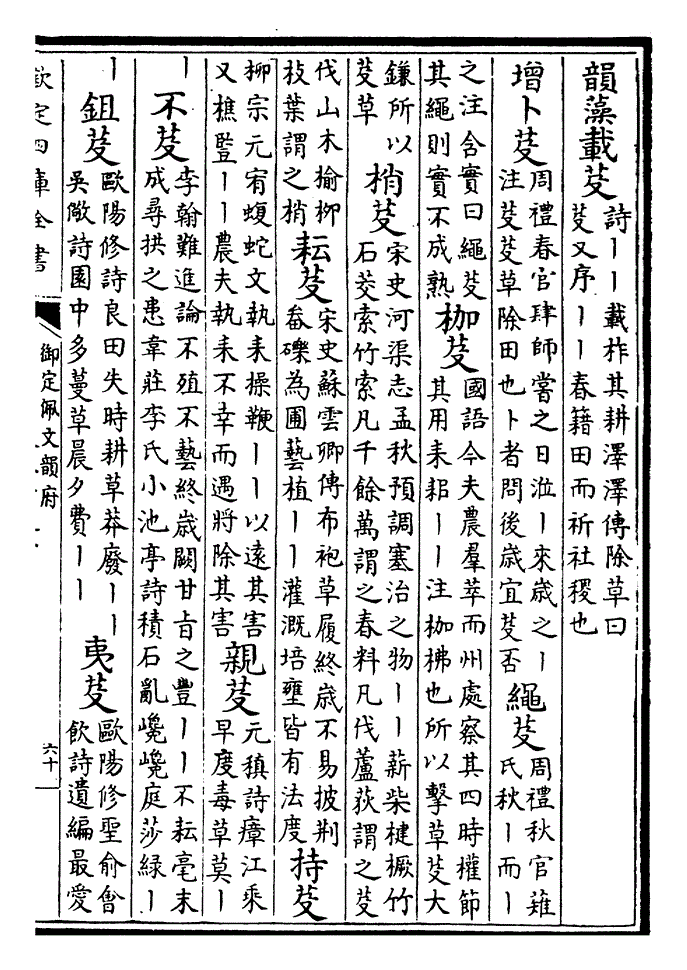 韻藻載芟
詩丨丨載柞其耕澤澤傳除草曰
芟又序丨丨春籍田而祈社稷也
增卜芟
周禮春官肆師嘗之日涖丨來歲之丨
注芟芟草除田也卜者問後歲宜芟否
繩芟
周禮秋官薙
氏秋丨而丨
之注含實曰繩芟
其繩則實不成熟
枷芟
國語今夫農羣萃而州處察其四時權節
其用耒耜丨丨注枷梻也所以擊草芟大
鎌所以
芟草
梢芟
宋史河渠志孟秋預調塞治之物丨丨薪柴楗橛竹
石茭索竹索凡千餘萬謂之春料凡伐蘆荻謂之芟
伐山木揄柳
枝葉謂之梢
耘芟
宋史蘇雲卿傳布袍草履終歲不易披荆
畚礫為圃藝植丨丨灌溉培壅皆有法度
持芟
柳宗元宥蝮蛇文執耒操鞭丨丨以遠其害
又樵豎丨丨農夫執耒不幸而遇將除其害
親芟
元稹詩瘴江乘
早度毒草莫丨
丨
不芟
李翰難進論不殖不藝終歲闕甘旨之豐丨丨不耘毫末
成尋拱之患韋莊李氏小池亭詩積石亂巉巉庭莎綠丨
丨
鉏芟
歐陽修詩良田失時耕草莽廢丨丨
吳儆詩園中多蔓草晨夕費丨丨
夷芟
歐陽修聖俞會
飲詩遺編最愛
欽定四庫全書
御定佩文韻府
六十